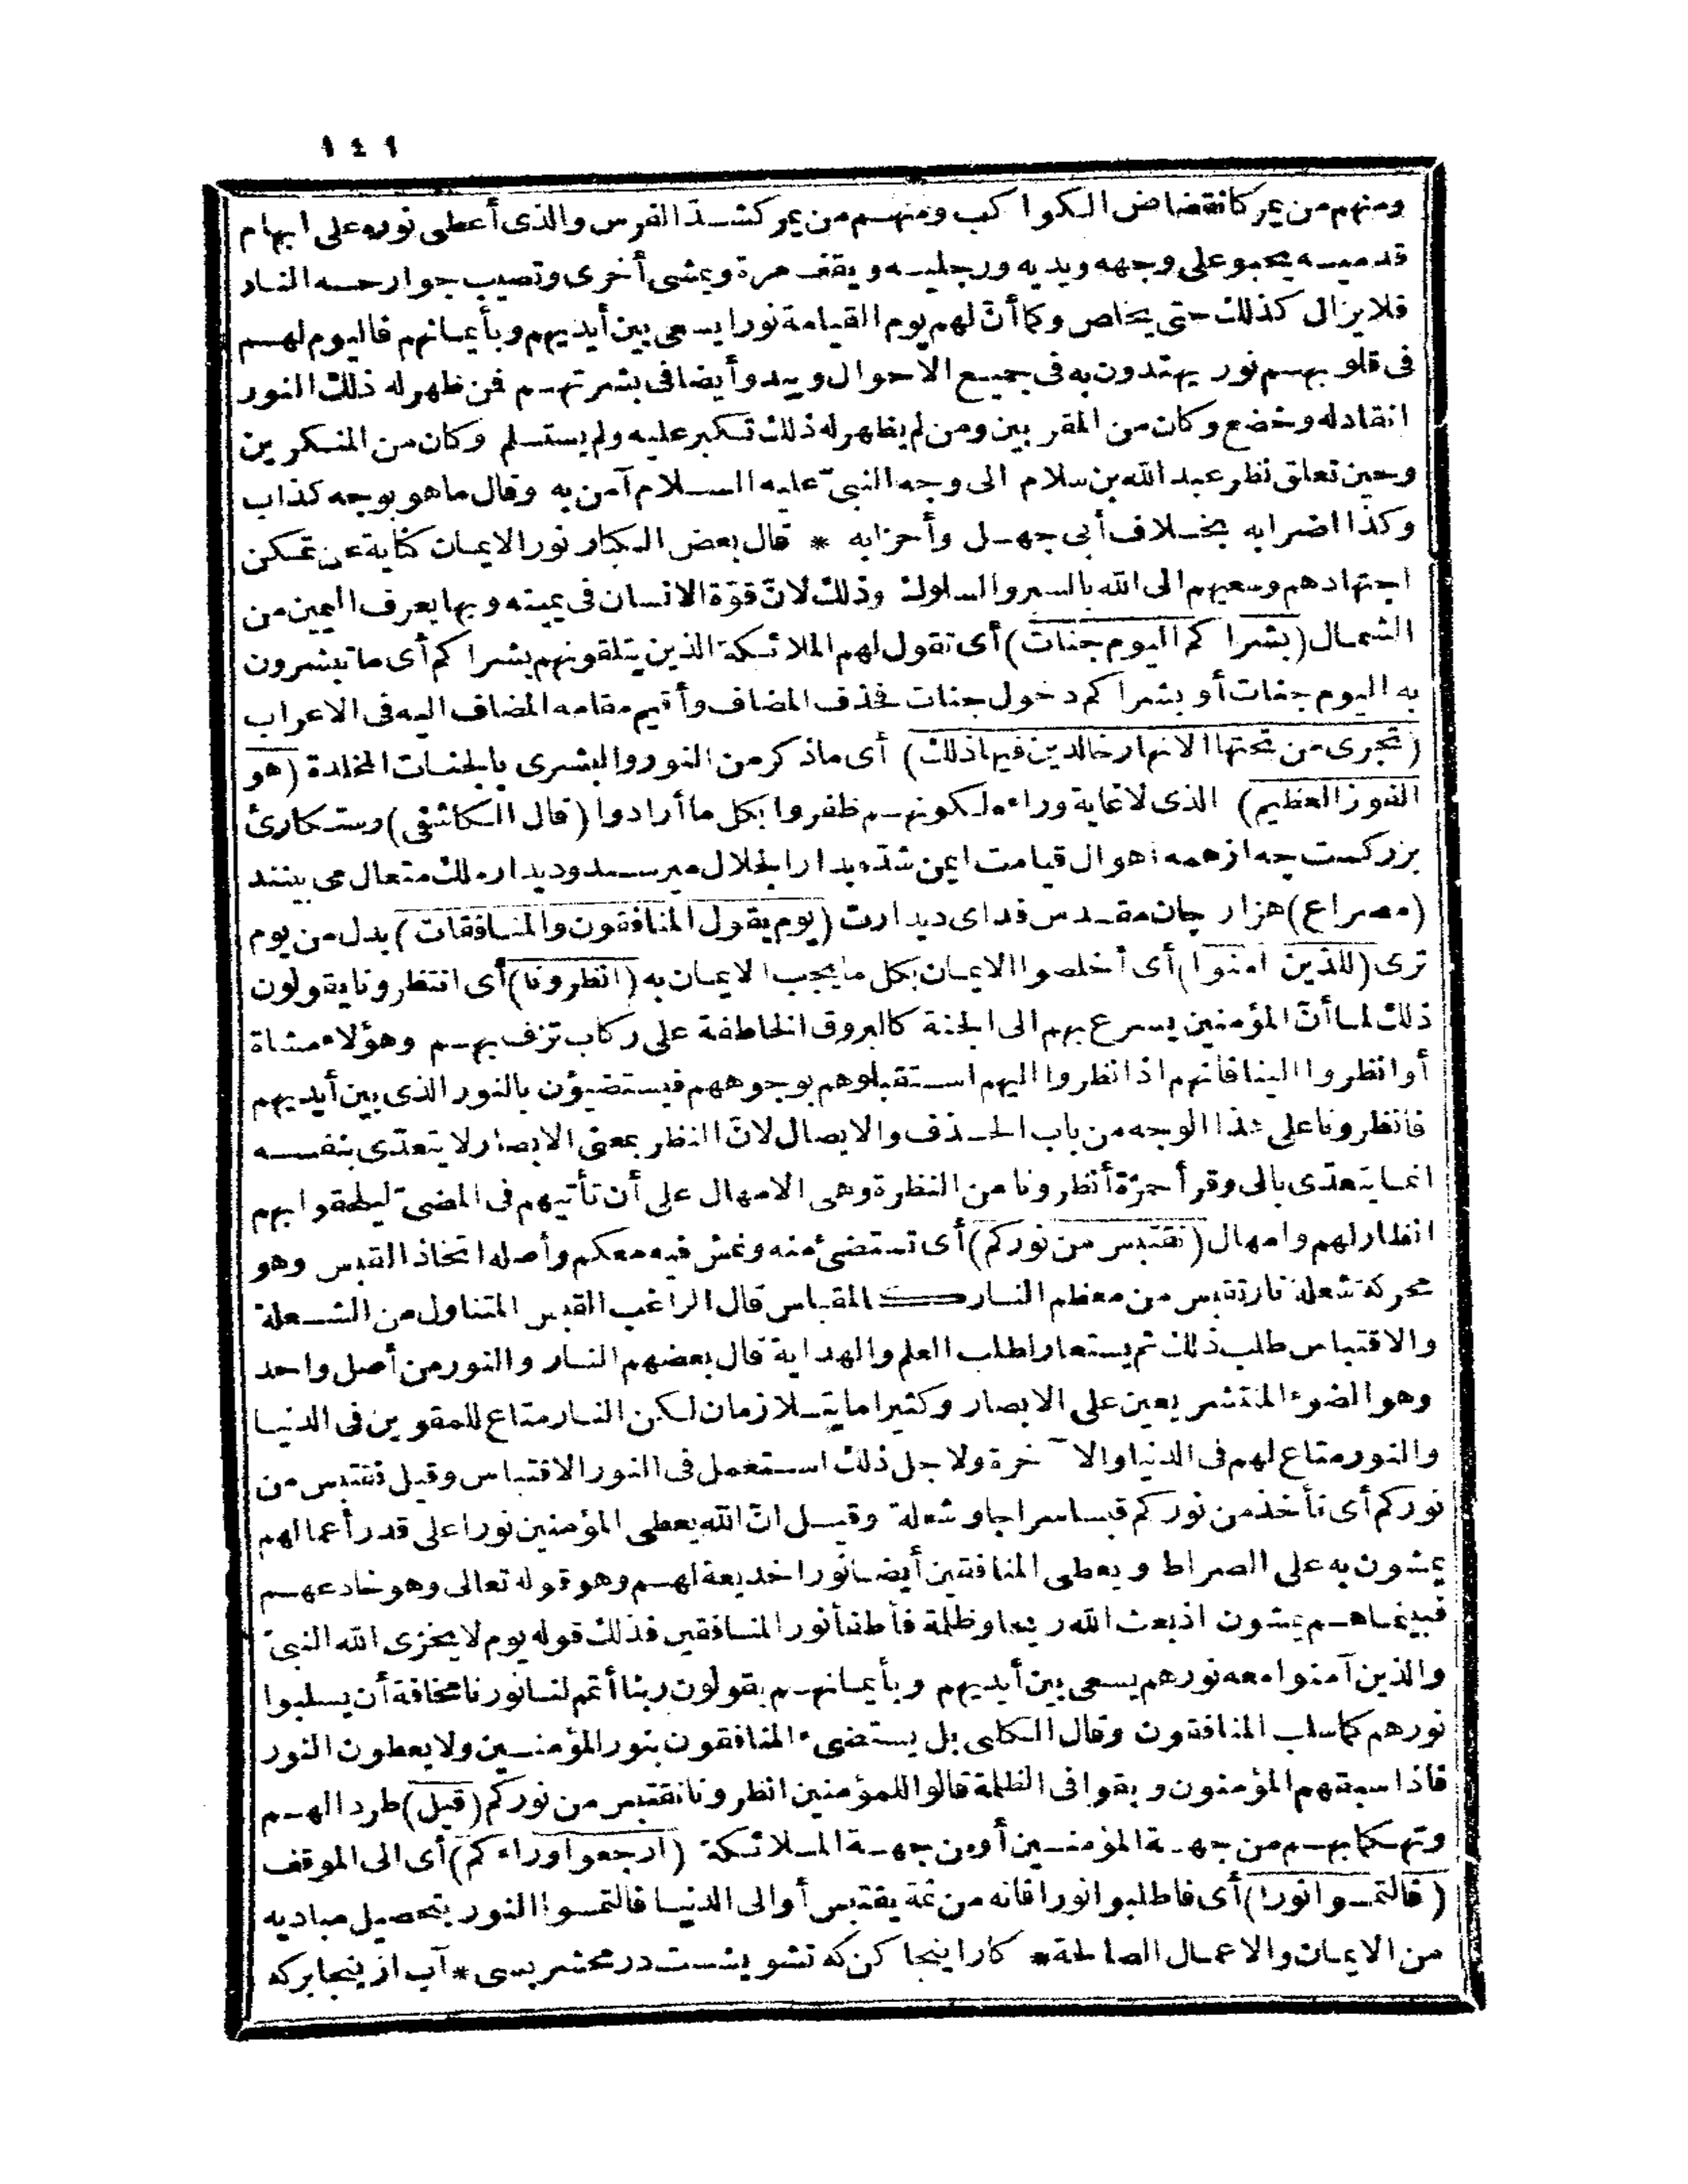 ١٤١
ومنهم من يمر كانقضاض الكواكب ومنهم من يمر كشد الفرس والذى أعطى نوره على ابهام
قدميه يحبو على وجهه ويديه ورجليه ويقف مرة ويمشى أخرى وتصيب جوارحه النار
فلا يزال كذلك حتى يخلص وكما أنّ لهم يوم القيامة نورا يسعى بين أيديهم وبأيمانهم فاليوم لهم
فى قلوبهم نور يهتدون به فى جميع الاحوال ويبدو أيضا فى بشرتهم فمن ظهر له ذلك النور
انقاد له وخضع وكان من المقربين ومن لم يظهر له ذلك تكبر عليه ولم يستسلم وكان من المنكرين
وحين تعلق نظر عبد الله بن سلام الى وجه النبىّ عليه السلام آمن به وقال ما هو بوجه كذاب
وكذا اضرابه بخلاف أبى جهل وأحزابه * قال بعض الكبار نور الايمان كناية عن تمكن
اجتهادهم وسعيهم الى الله بالسير والسلوك وذلك لانّ قوّة الانسان فى يمينه وبها يعرف اليمين من
الشمال (بشراكم اليوم جنات) أى تقول لهم الملائكة الذين يتلقونهم بشراكم أى ما تبشرون
به اليوم جنات أو بشراكم دخول جنات فحذف المضاف وأقيم مقامه المضاف اليه فى الاعراب
(تجرى من تحتها الانهار خالدين فيها ذلك) أى ما ذكر من النور والبشرى بالجنات المخلدة (هو
الفوز العظيم) الذى لا غاية وراءه لكونهم ظفروا بكل ما أرادوا (قال الكاشفى) رستكارئ
بزركست چه از همه اهوال قيامت ايمن شده بدار الجلال ميرسند وديدار ملك متعال مى بينند
(مصراع) هزار جان مقدس فداى ديدارت (يوم يقول المنافقون والمنافقات) بدل من يوم
ترى (للذين امنوا) أى أخلصوا الايمان بكل ما يجب الايمان به (انظرونا) أى انتظرونا يقولون
ذلك لما أنّ المؤمنين يسرع بهم الى الجنة كالبروق الخاطفة على ركاب تزف بهم وهؤلاء مشاة
أو انظروا الينا فانهم اذا نظروا اليهم استقبلوهم بوجوههم فيستضيؤن بالنور الذى بين أيديهم
فانظرونا على هذا الوجه من باب الحذف والايصال لانّ النظر بمعنى الابصار لا يتعدّى بنفسه
انما يتعدّى بالى وقرأ حمزة أنظرونا من النظرة وهى الامهال على أن تأتيهم فى المضىّ ليلحقوا بهم
انظار لهم وامهال (نقتبس من نوركم) أى نستضئ منه ونمش فيه معكم وأصله اتخاذ القبس وهو
محركة شعلة نار تقتبس من معظم النار كالمقباس قال الراغب القبس المتناول من الشعلة
والاقتباس طلب ذلك ثم يستعار لطلب العلم والهداية قال بعضهم النار والنور من أصل واحد
وهو الضوء المنتشر يعين على الابصار وكثيرا ما يتلازمان لكن النار متاع للمقوين فى الدنيا
والنور متاع لهم فى الدنيا والآخرة ولاجل ذلك استعمل فى النور الاقتباس وقيل نقتبس من
نوركم أى نأخذ من نوركم قبسا سراجا وشعلة وقيل انّ الله يعطى المؤمنين نورا على قدر أعمالهم
يمشون به على الصراط ويعطى المنافقين أيضا نورا خديعة لهم وهو قوله تعالى وهو خادعهم
فبينما هم يمشون اذ بعث الله ريحا وظلمة فأطفأ نور المنافقين فذلك قوله يوم لا يخزى الله النبىّ
والذين آمنوا معه نورهم يسعى بين أيديهم وبأيمانهم يقولون ربنا أتمم لنا نورنا مخافة أن يسلبوا
نورهم كما سلب المنافقون وقال الكلبى بل يستضىء المنافقون بنور المؤمنين ولا يعطون النور
فاذا سبقهم المؤمنون وبقوا فى الظلمة قالوا للمؤمنين انظرونا نقتبس من نوركم (قيل) طردا لهم
وتهكما بهم من جهة المؤمنين أو من جهة الملائكة (ارجعوا وراءكم) أى الى الموقف
(فالتمسوا نورا) أى فاطلبوا نورا فانه من ثمة يقتبس أو الى الدنيا فالتمسوا النور بتحصيل مباديه
من الايمان والاعمال الصالحة * كار اينجا كن كه تشويشست در محشر بسى * آب از ينجا بر كه